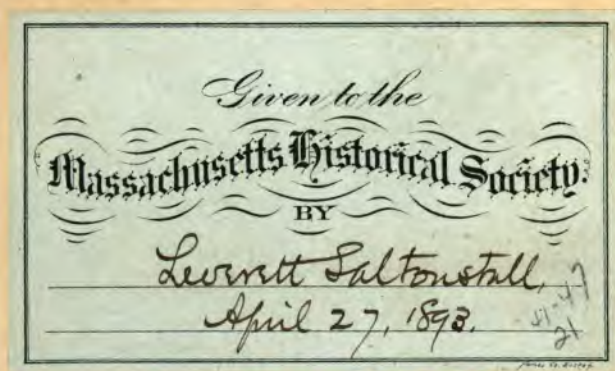 Given to the
Massachusetts Historical Society.
BY
Leverett Saltonstall,
April 27, 1893.
41-47
21